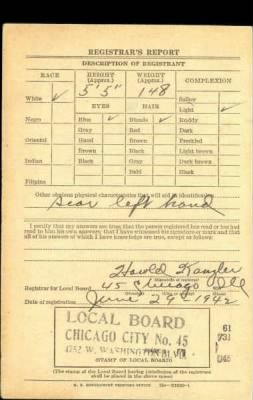 REGISTRAR'S REPORT
DESCRIPTION OF REGISTRANT
RACE HEIGHT (Approx.) WEIGHT (Approx.) COMPLEXION
5' 5" 148
White ✓ Sallow
EYES HAIR Light ✓
Negro Blue ✓ Blonde ✓ Ruddy
Gray Red Dark
Oriental Hazel Brown Freckled
Brown Black Light brown
Indian Black Gray Dark brown
Bald Black
Filipino
Other obvious physical characteristics that will aid in identification
Scar left hand
I certify that my answers are true; that the person registered has read or has had read to him his own answers; that I have witnessed his signature or mark and that all of his answers of which I have knowledge are true, except as follows:
Harold
Registrar for Local Board 45 Chicago Ill
Date of registration June 29 - 1942
LOCAL BOARD 61
CHICAGO CITY No. 45 731
1752 W. WASHINGTON BLVD. 045
(STAMP OF LOCAL BOARD)
(The stamp of the Local Board having jurisdiction of the registrant shall be placed in the above space)
U. S. GOVERNMENT PRINTING OFFICE